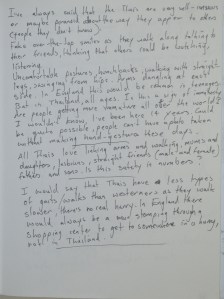 I've always said that the Thais are very self-conscious
or maybe paranoid about the way they appear to others
(people they don't know).
Fake over-the-top smiles as they walk along talking to
their friends, thinking that others could be watching,
listening.
Uncomfortable postures, walking with straight
legs, swinging from hips. Arms dangling at each
side. In England this would be remain in teenagers
But in Thailand, all ages. Is this a sign of somebody
are people getting more like this all over the world?
I wouldn't know, I've been here 14 years. Could
be quite possible, people can't have a photo taken
without making hand gestures these days.
All Thais love linking arms and walking, mums and
daughters, lesbians, straight friends (male and female)
fathers and sons. Is this safety in numbers?
I would say that Thais have less types
of gaits/walks than westerners as they walk
slower, there's no real hurry. In England there
would always be a man stomping through a
shopping center to get to somewhere in a hurry,
not in Thailand